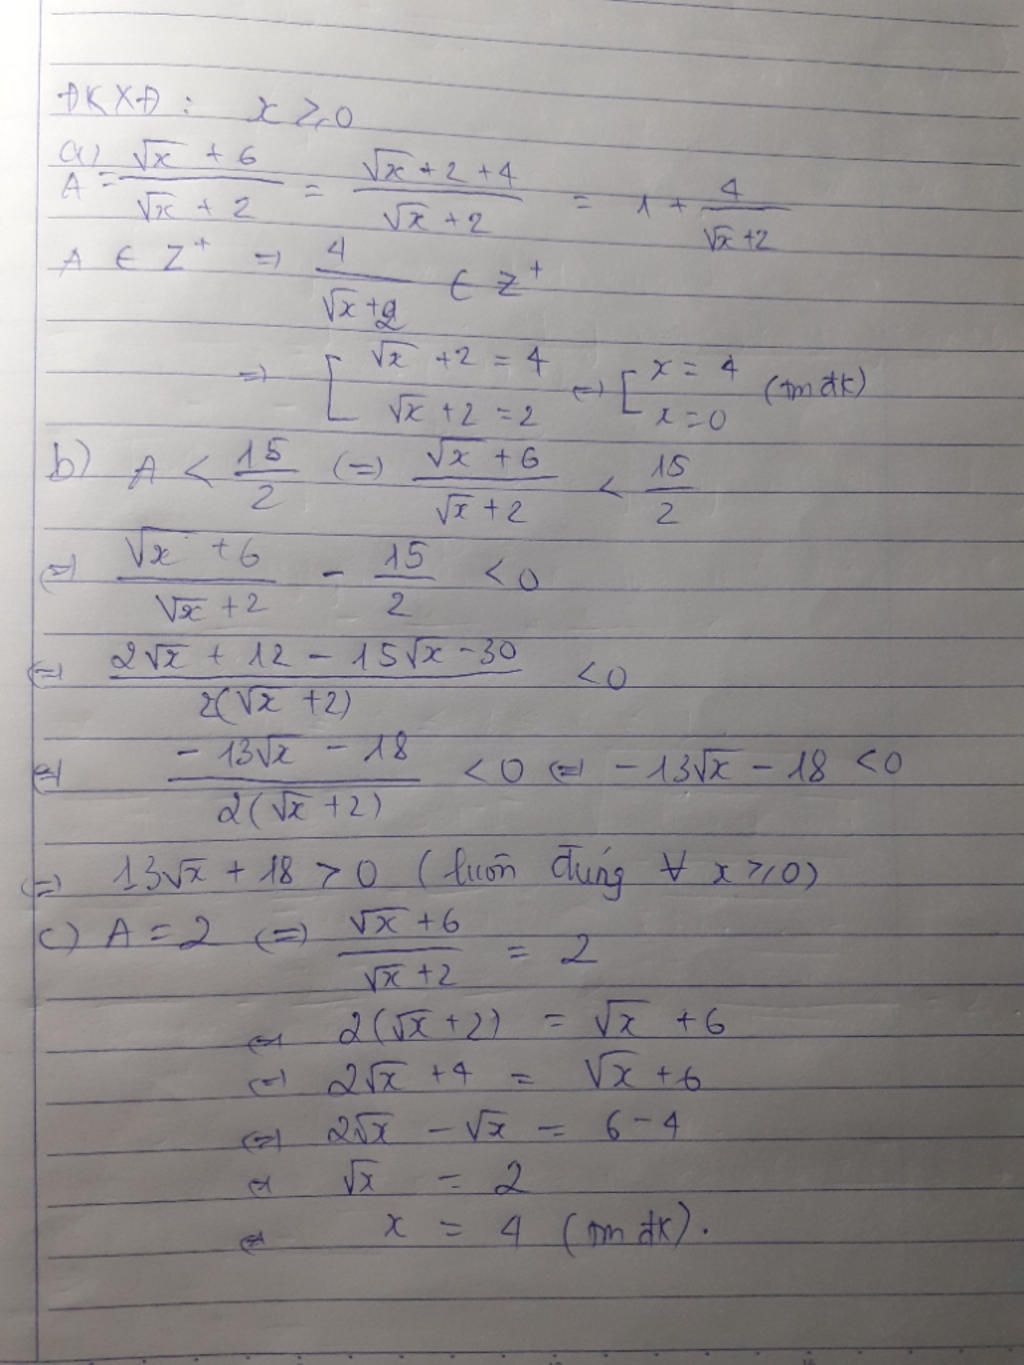 ĐKXĐ : x ⩾ 0
a) A = (√x + 6)/(√x + 2) = (√x + 2 + 4)/(√x + 2) = 1 + 4/(√x + 2)
A ∈ Z⁺ ⇒ 4/(√x + 2) ∈ Z⁺
⇒ [ √x + 2 = 4 ; √x + 2 = 2 ⇔ [ x = 4 ; x = 0 (tm đk)
b) A < 15/2 (⇒) (√x + 6)/(√x + 2) < 15/2
⇔ (√x + 6)/(√x + 2) - 15/2 < 0
⇔ (2√x + 12 - 15√x - 30)/(2(√x + 2)) < 0
⇔ (-13√x - 18)/(2(√x + 2)) < 0 ⇔ -13√x - 18 < 0
⇔ 13√x + 18 > 0 (luôn đúng ∀ x ⩾ 0)
c) A = 2 (⇒) (√x + 6)/(√x + 2) = 2
⇔ 2(√x + 2) = √x + 6
⇔ 2√x + 4 = √x + 6
⇔ 2√x - √x = 6 - 4
⇔ √x = 2
⇔ x = 4 (tm đk).